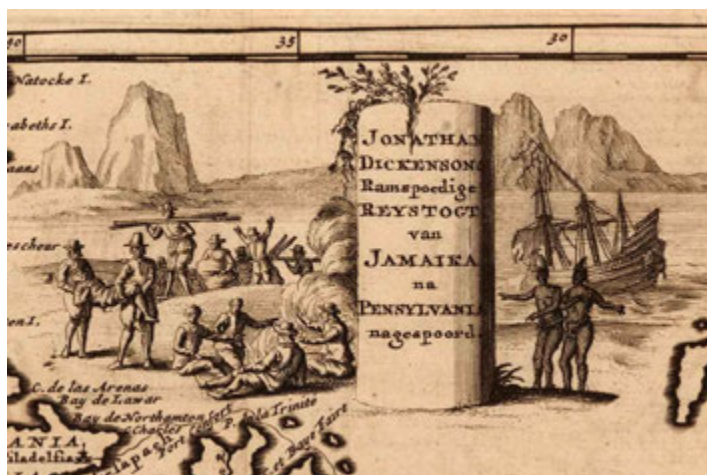 35
30
Natocke I.
abeths I.
aans
eschour
en I.
JONATHAN
DICKENSONS
Ramspoedige
REYSTOGT
van
JAMAIKA
na
PENSYLVANIA
nagespoord.
C. de las Arenas
Bay de Lawar
Bay de Northamton
C. Charles
Port Confort
P. de la Trinite
ANIA,
iladelfia